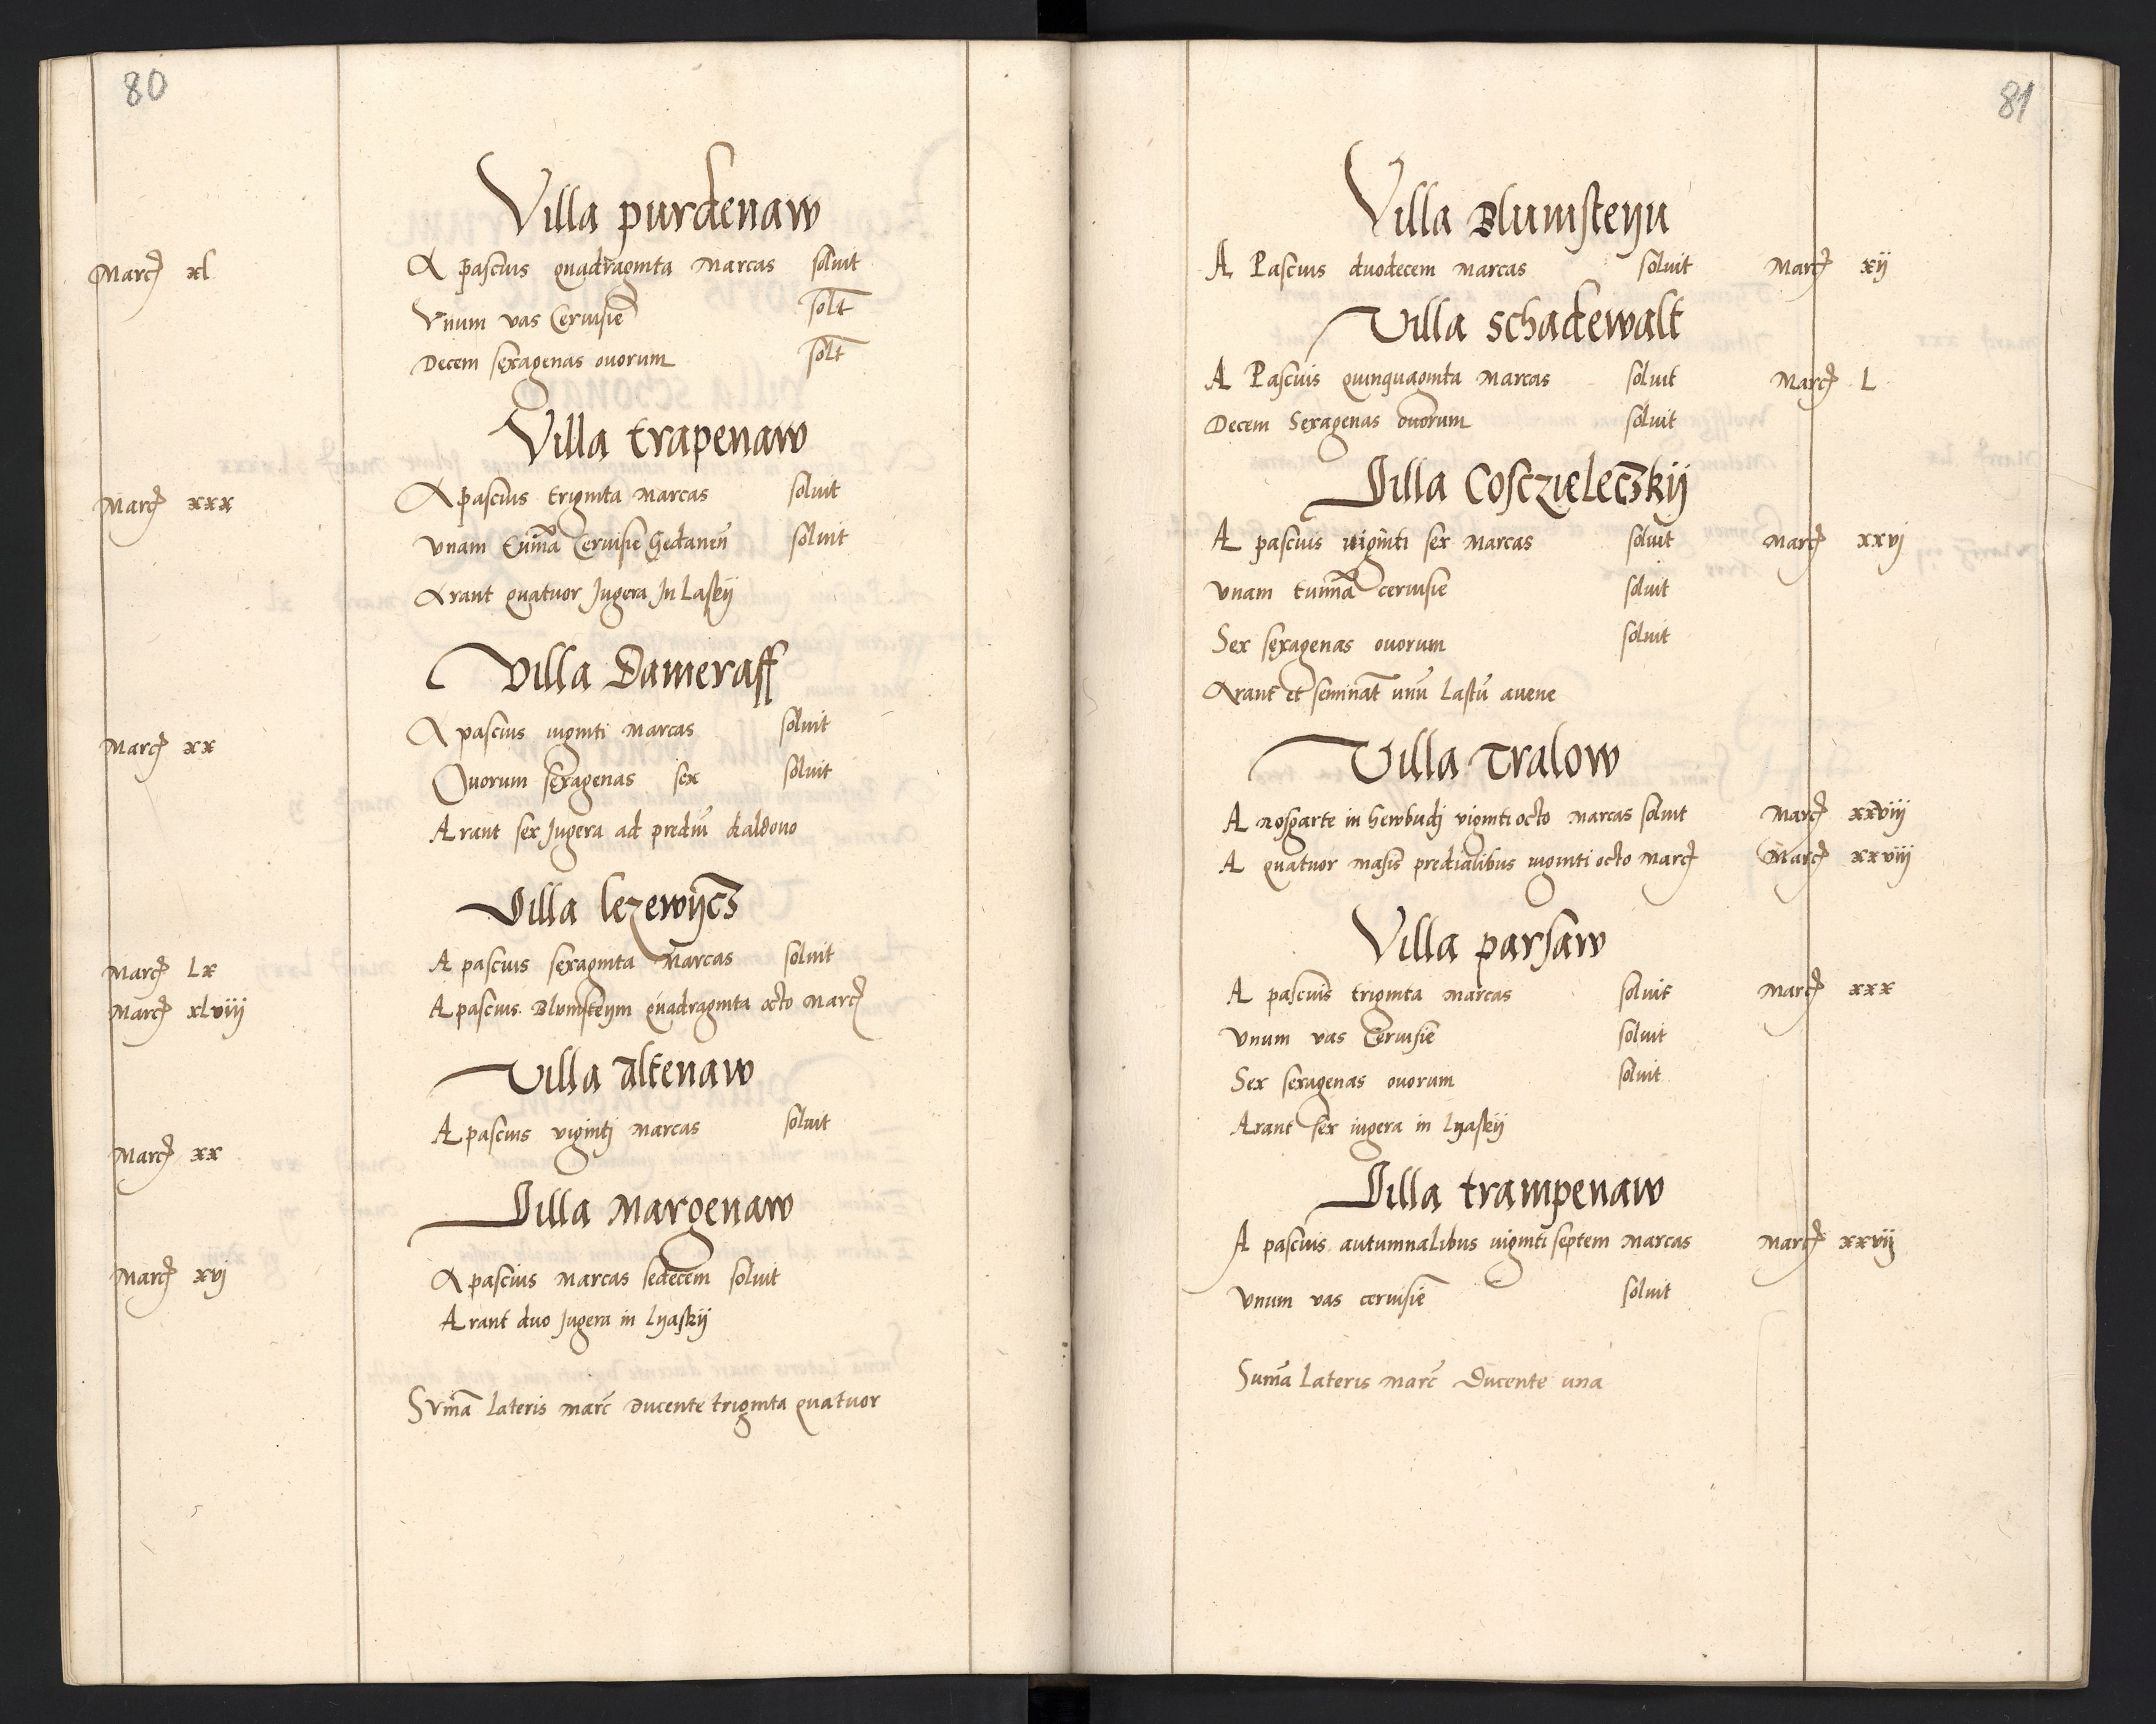 80
Villa purdenaw
Marcę xl A pascuis quadraginta Marcas soluit
Vnum vas Ceruisie solt
Decem sexagenas ouorum solt
Villa trapenaw
Marcę xxx A pascuis triginta Marcas soluit
vnam tunna Ceruisie Gedanen soluit
Arant quatuor Jugera Jn Laskij
Villa Dameraff
Marcę xx A pascuis viginti Marcas soluit
Ouorum sexagenas sex soluit
Arant sex Jugera ad prediu kaldouo
Villa lezewijcz
Marcę Lx A pascuis sexaginta Marcas soluit
Marcę xlviij A pascuis Blumsteym quadraginta octo Marcę
Villa altenaw
Marcę xx A pascuis vigintj Marcas soluit
Villa Margenaw
Marcę xvj A pascuis Marcas sedecem soluit
Arant duo Jugera in lyaskij
Sum̄a Lateris Marc̄ Ducente triginta quatuor
81
Villa Blumsteyn
A Pascuis duodecem Marcas soluit Marcę xij
Villa schadewalt
A Pascuis quinquaginta Marcas soluit Marcę L
Decem Sexagenas ouorum soluit
Villa Cosczieleczkij
A pascuis viginti sex Marcas soluit Marcę xxvj
vnam tunna ceruisie soluit
Sex sexagenas ouorum soluit
Arant et seminat unu Lastu auene
Villa Tralow
A Rosgarte in hewbudj viginti octo Marcas soluit Marcę xxviij
A quatuor Masis predialibus viginti octo Marcę Marcę xxviij
Villa parsaw
A pascuis triginta Marcas soluit Marcę xxx
Vnum vas Ceruisie soluit
Sex sexagenas ouorum soluit
Arant sex iugera in lyaskij
Villa trampenaw
A pascuis autumnalibus viginti septem Marcas Marcę xxvij
Vnum vas ceruisie soluit
Sum̄a Lateris Marc̄ Ducente una